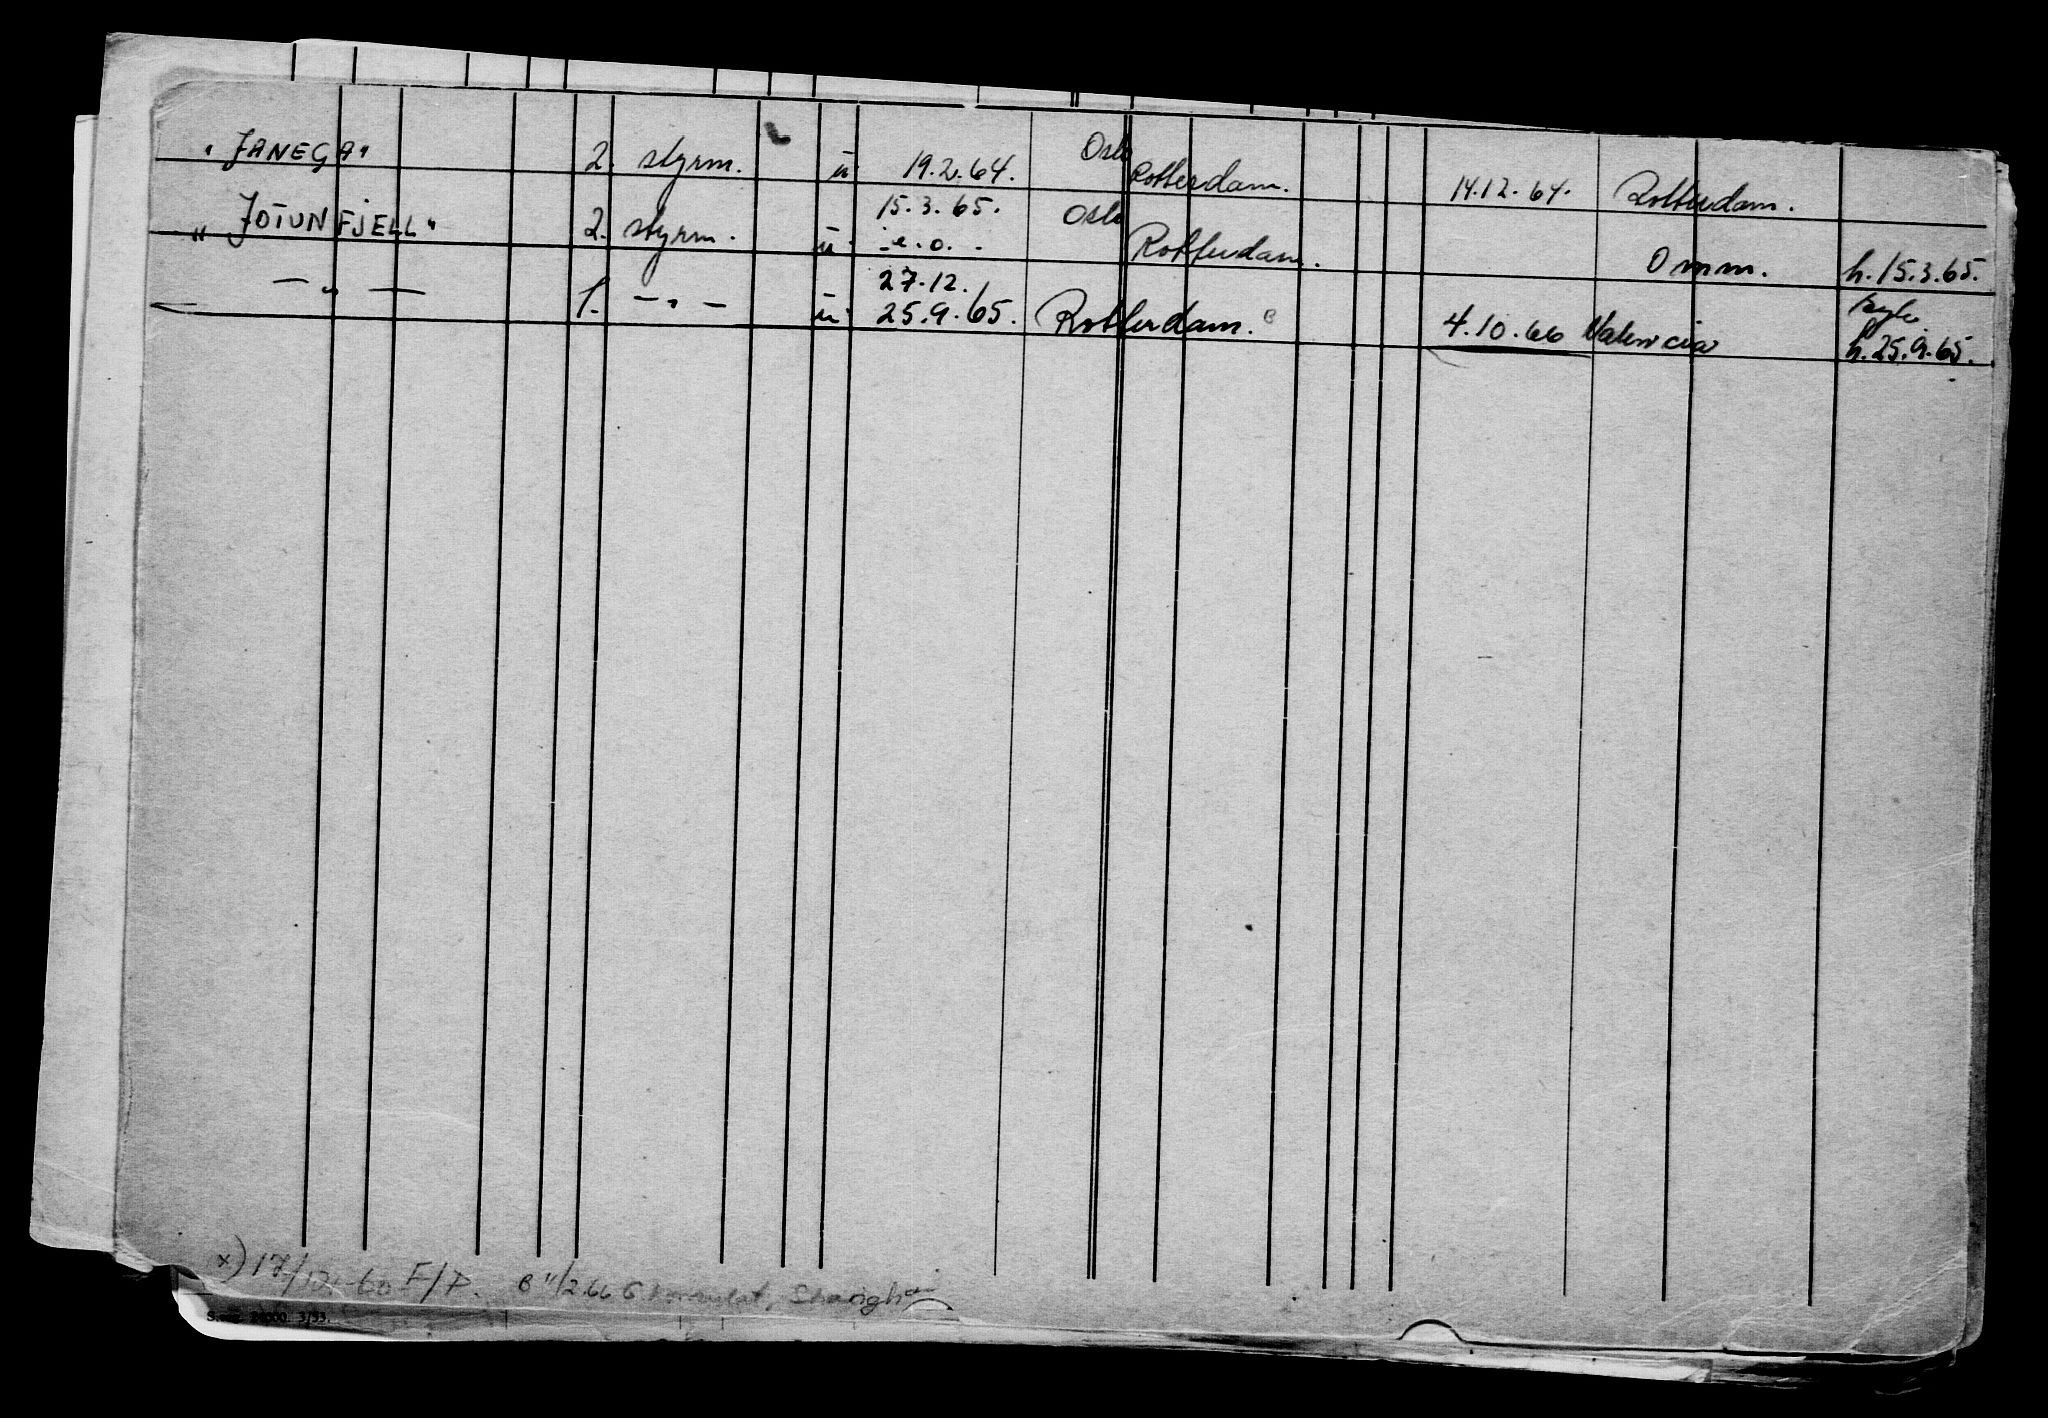 "JANEGA" 2. styrm. u. 19.2.64. Oslo Rotterdam. 14.12.64. Rotterdam.
"JOTUNFJELL" 2. styrm. u. 15.3.65. i.e.o. Oslo Rotterdam. Omm. h.15.3.65.
— " — 1. — " — u. 27.12. 25.9.65. Rotterdam. B 4.10.66 Valencia h.25.9.65.
x) 17/12-60 F/P. B 11/2.66 G. konsulat, Shanghai
3/53.